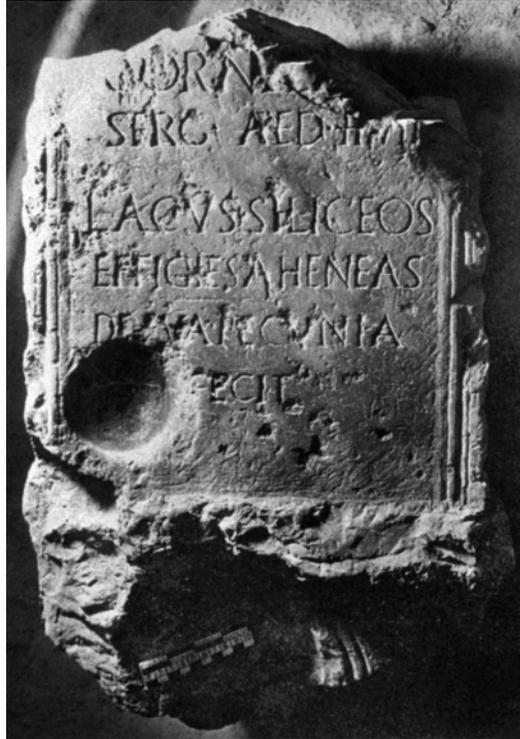 CORN
SERG AED
LACVS SILICEOS
EFFIGIES AHENEAS
DE SVA PECVNIA
FECIT